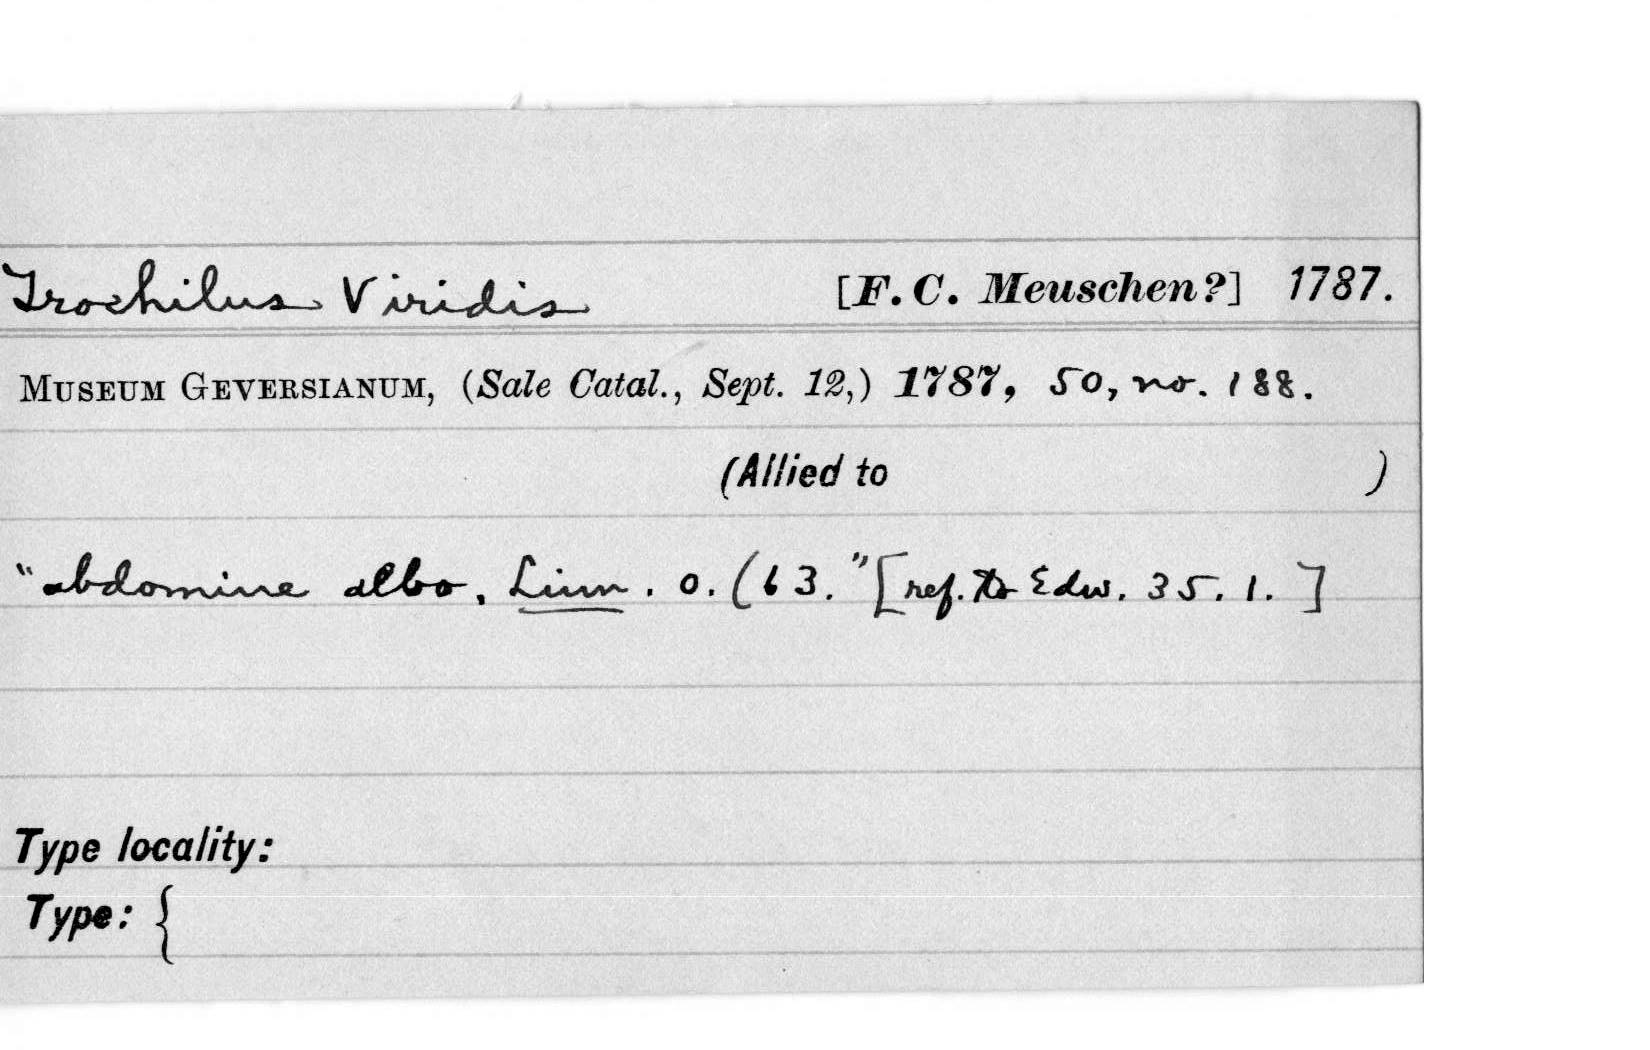 Trochilus Viridis [F. C. Meuschen?] 1787.
MUSEUM GEVERSIANUM, (Sale Catal., Sept. 12,) 1787, 50, no. 188.
(Allied to )
"abdomine albo, Linn. o. (63." [ref. to Edw. 35. 1.]
Type locality:
Type: {